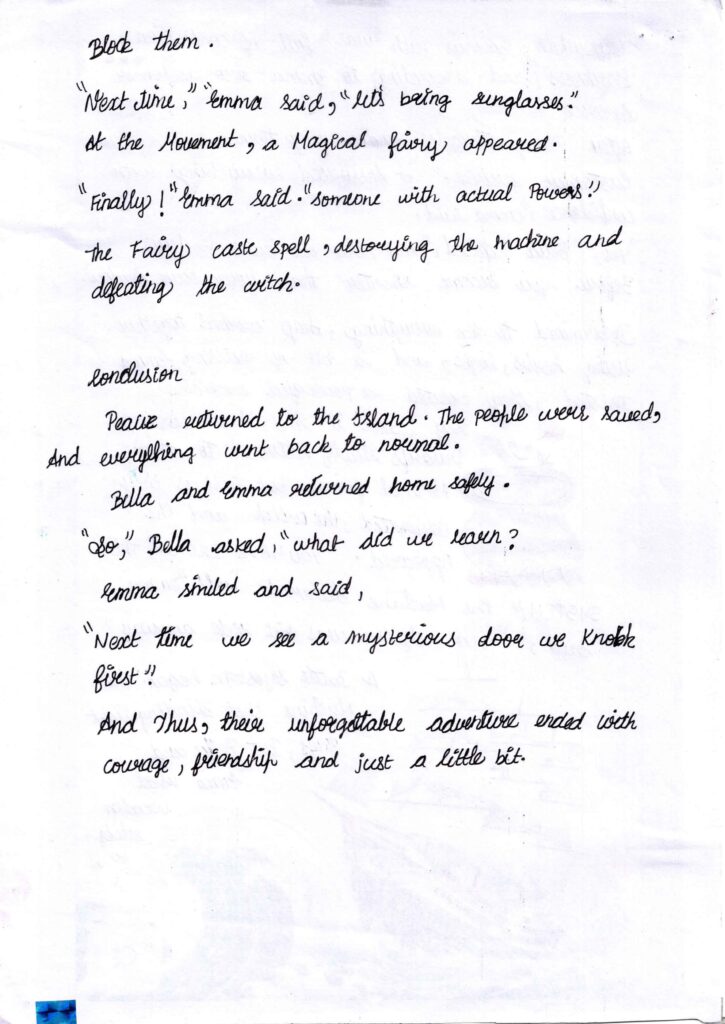 Block them.
"Next time," "Emma said, "let's being sunglasses."
At the Movement, a Magical fairy appeared.
"Finally!" Emma said. "someone with actual Powers!"
The Fairy caste spell, destorying the machine and
defeating the witch.
Conclusion
Peace returned to the Island. The people were saved,
And everything went back to normal.
Bella and Emma returned home safely.
"So," Bella asked, "what did we learn?
Emma smiled and said,
"Next time we see a mysterious door we Knock
first"!
And Thus, their unforgettable adventure ended with
courage, friendship and just a little bit.